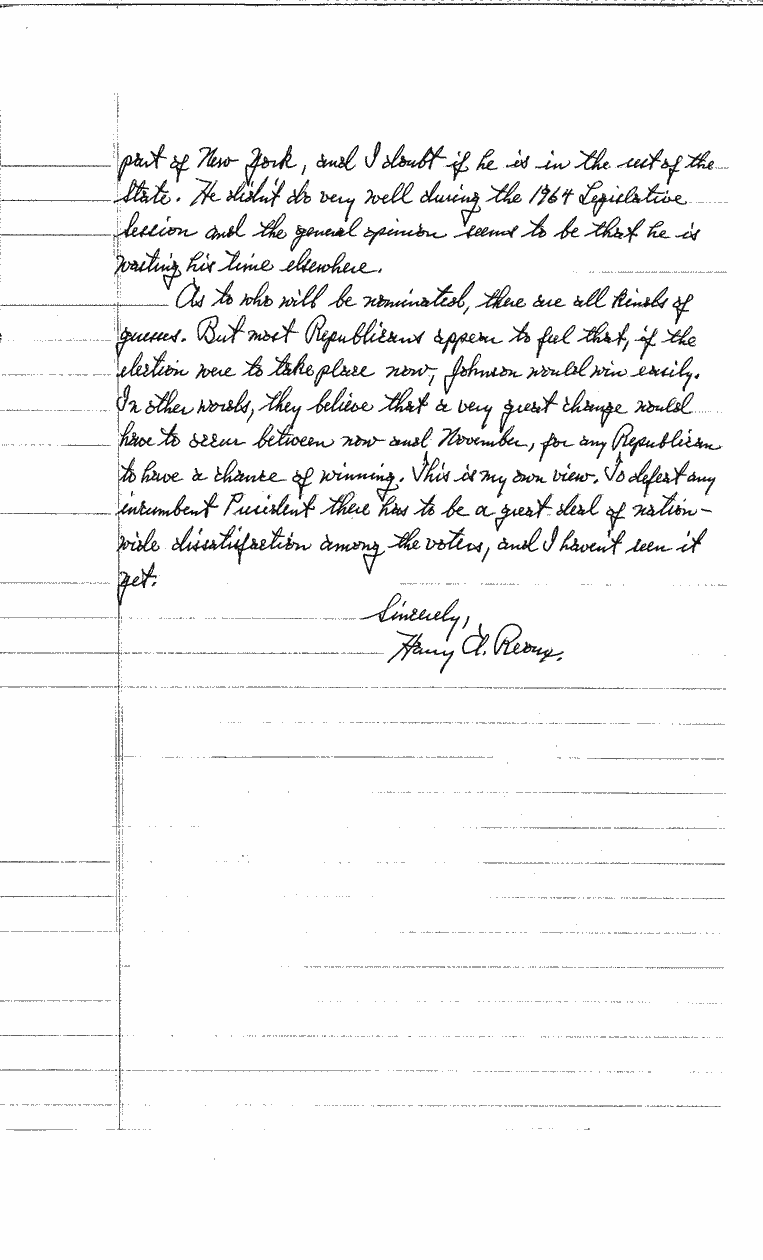 part of New York, and I doubt if he is in the rest of the
State. He didn't do very well during the 1964 Legislative
Session and the general opinion seems to be that he is
wasting his time elsewhere.
As to who will be nominated, there are all kinds of
guesses. But most Republicans appear to feel that, if the
election were to take place now, Johnson would win easily.
In other words, they believe that a very great change would
have to occur between now and November, for any Republican
to have a chance of winning. This is my own view. To defeat any
incumbent President there has to be a great deal of nation-
wide dissatisfaction among the voters, and I haven't seen it
yet.
Sincerely,
Harry D.